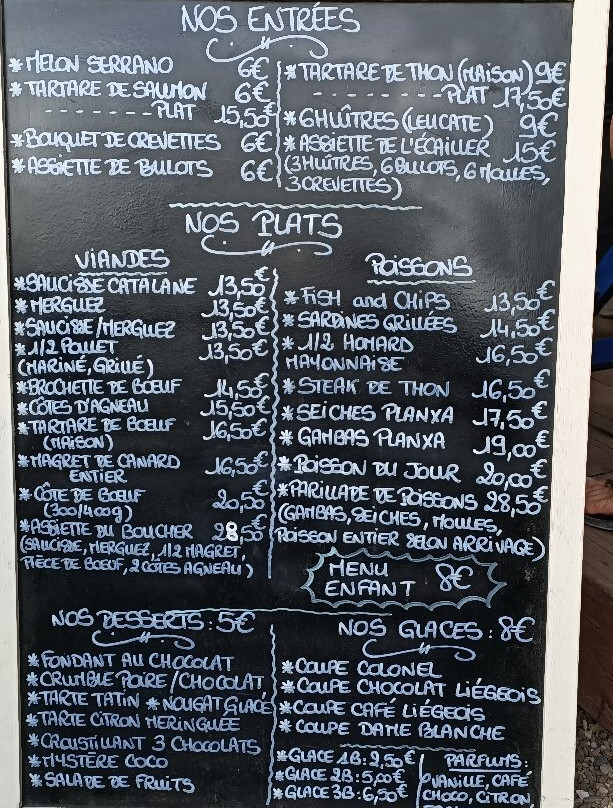 NOS ENTRÉES
* MELON SERRANO 6€
* TARTARE DE SAUMON 6€
- - - - - - - PLAT 15,50€
* BOUQUET DE CREVETTES 6€
* ASSIETTE DE BULOTS 6€
* TARTARE DE THON (MAISON) 9€
- - - - - - - PLAT 17,50€
* 6 HUÎTRES (LEUCATE) 9€
* ASSIETTE DE L'ÉCAILLER 15€
(3 HUÎTRES, 6 BULOTS, 6 MOULES,
3 CREVETTES)
NOS PLATS
VIANDES
* SAUCISSE CATALANE 13,50€
* MERGUEZ 13,50€
* SAUCISSE/MERGUEZ 13,50€
* 1/2 POULET 13,50€
(MARINÉ, GRILLÉ)
* BROCHETTE DE BŒUF 14,50€
* CÔTES D'AGNEAU 15,50€
* TARTARE DE BŒUF 16,50€
(MAISON)
* MAGRET DE CANARD
ENTIER 16,50€
* CÔTE DE BŒUF 20,50€
(300/400g)
* ASSIETTE DU BOUCHER 28,50€
(SAUCISSE, MERGUEZ, 1/2 MAGRET,
PIÈCE DE BOEUF, 2 CÔTES AGNEAU)
POISSONS
* FISH and CHIPS 13,50€
* SARDINES GRILLÉES 14,50€
* 1/2 HOMARD
MAYONNAISE 16,50€
* STEAK DE THON 16,50€
* SEICHES PLANXA 17,50€
* GAMBAS PLANXA 19,00€
* POISSON DU JOUR 20,00€
* PARILLADE DE POISSONS 28,50€
(GAMBAS, SEICHES, MOULES,
POISSON ENTIER SELON ARRIVAGE)
MENU
ENFANT 8€
NOS DESSERTS : 5€
* FONDANT AU CHOCOLAT
* CRUMBLE POIRE/CHOCOLAT
* TARTE TATIN * NOUGAT GLACÉ
* TARTE CITRON MERINGUÉE
* CROUSTILLANT 3 CHOCOLATS
* MYSTÈRE COCO
* SALADE DE FRUITS
NOS GLACES : 8€
* COUPE COLONEL
* COUPE CHOCOLAT LIÉGEOIS
* COUPE CAFÉ LIÉGEOIS
* COUPE DAME BLANCHE
* GLACE 1B : 2,50€
* GLACE 2B : 5,00€
* GLACE 3B : 6,50€
PARFUMS :
VANILLE, CAFÉ
CHOCO, CITRON